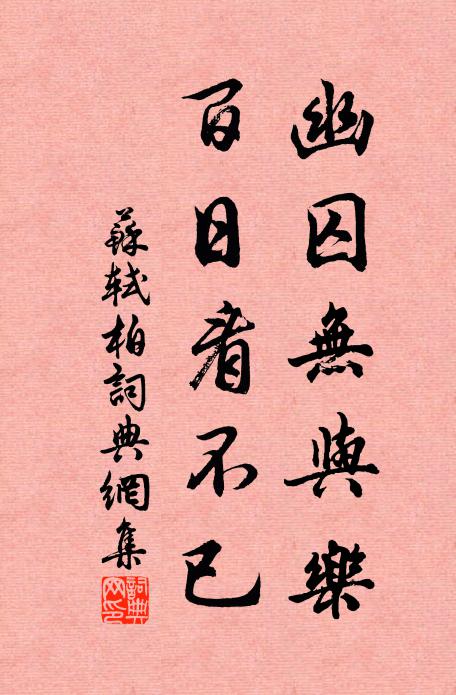 幽囚無與樂
百日看不已
蘇軾柏詞典網集
詞典網印